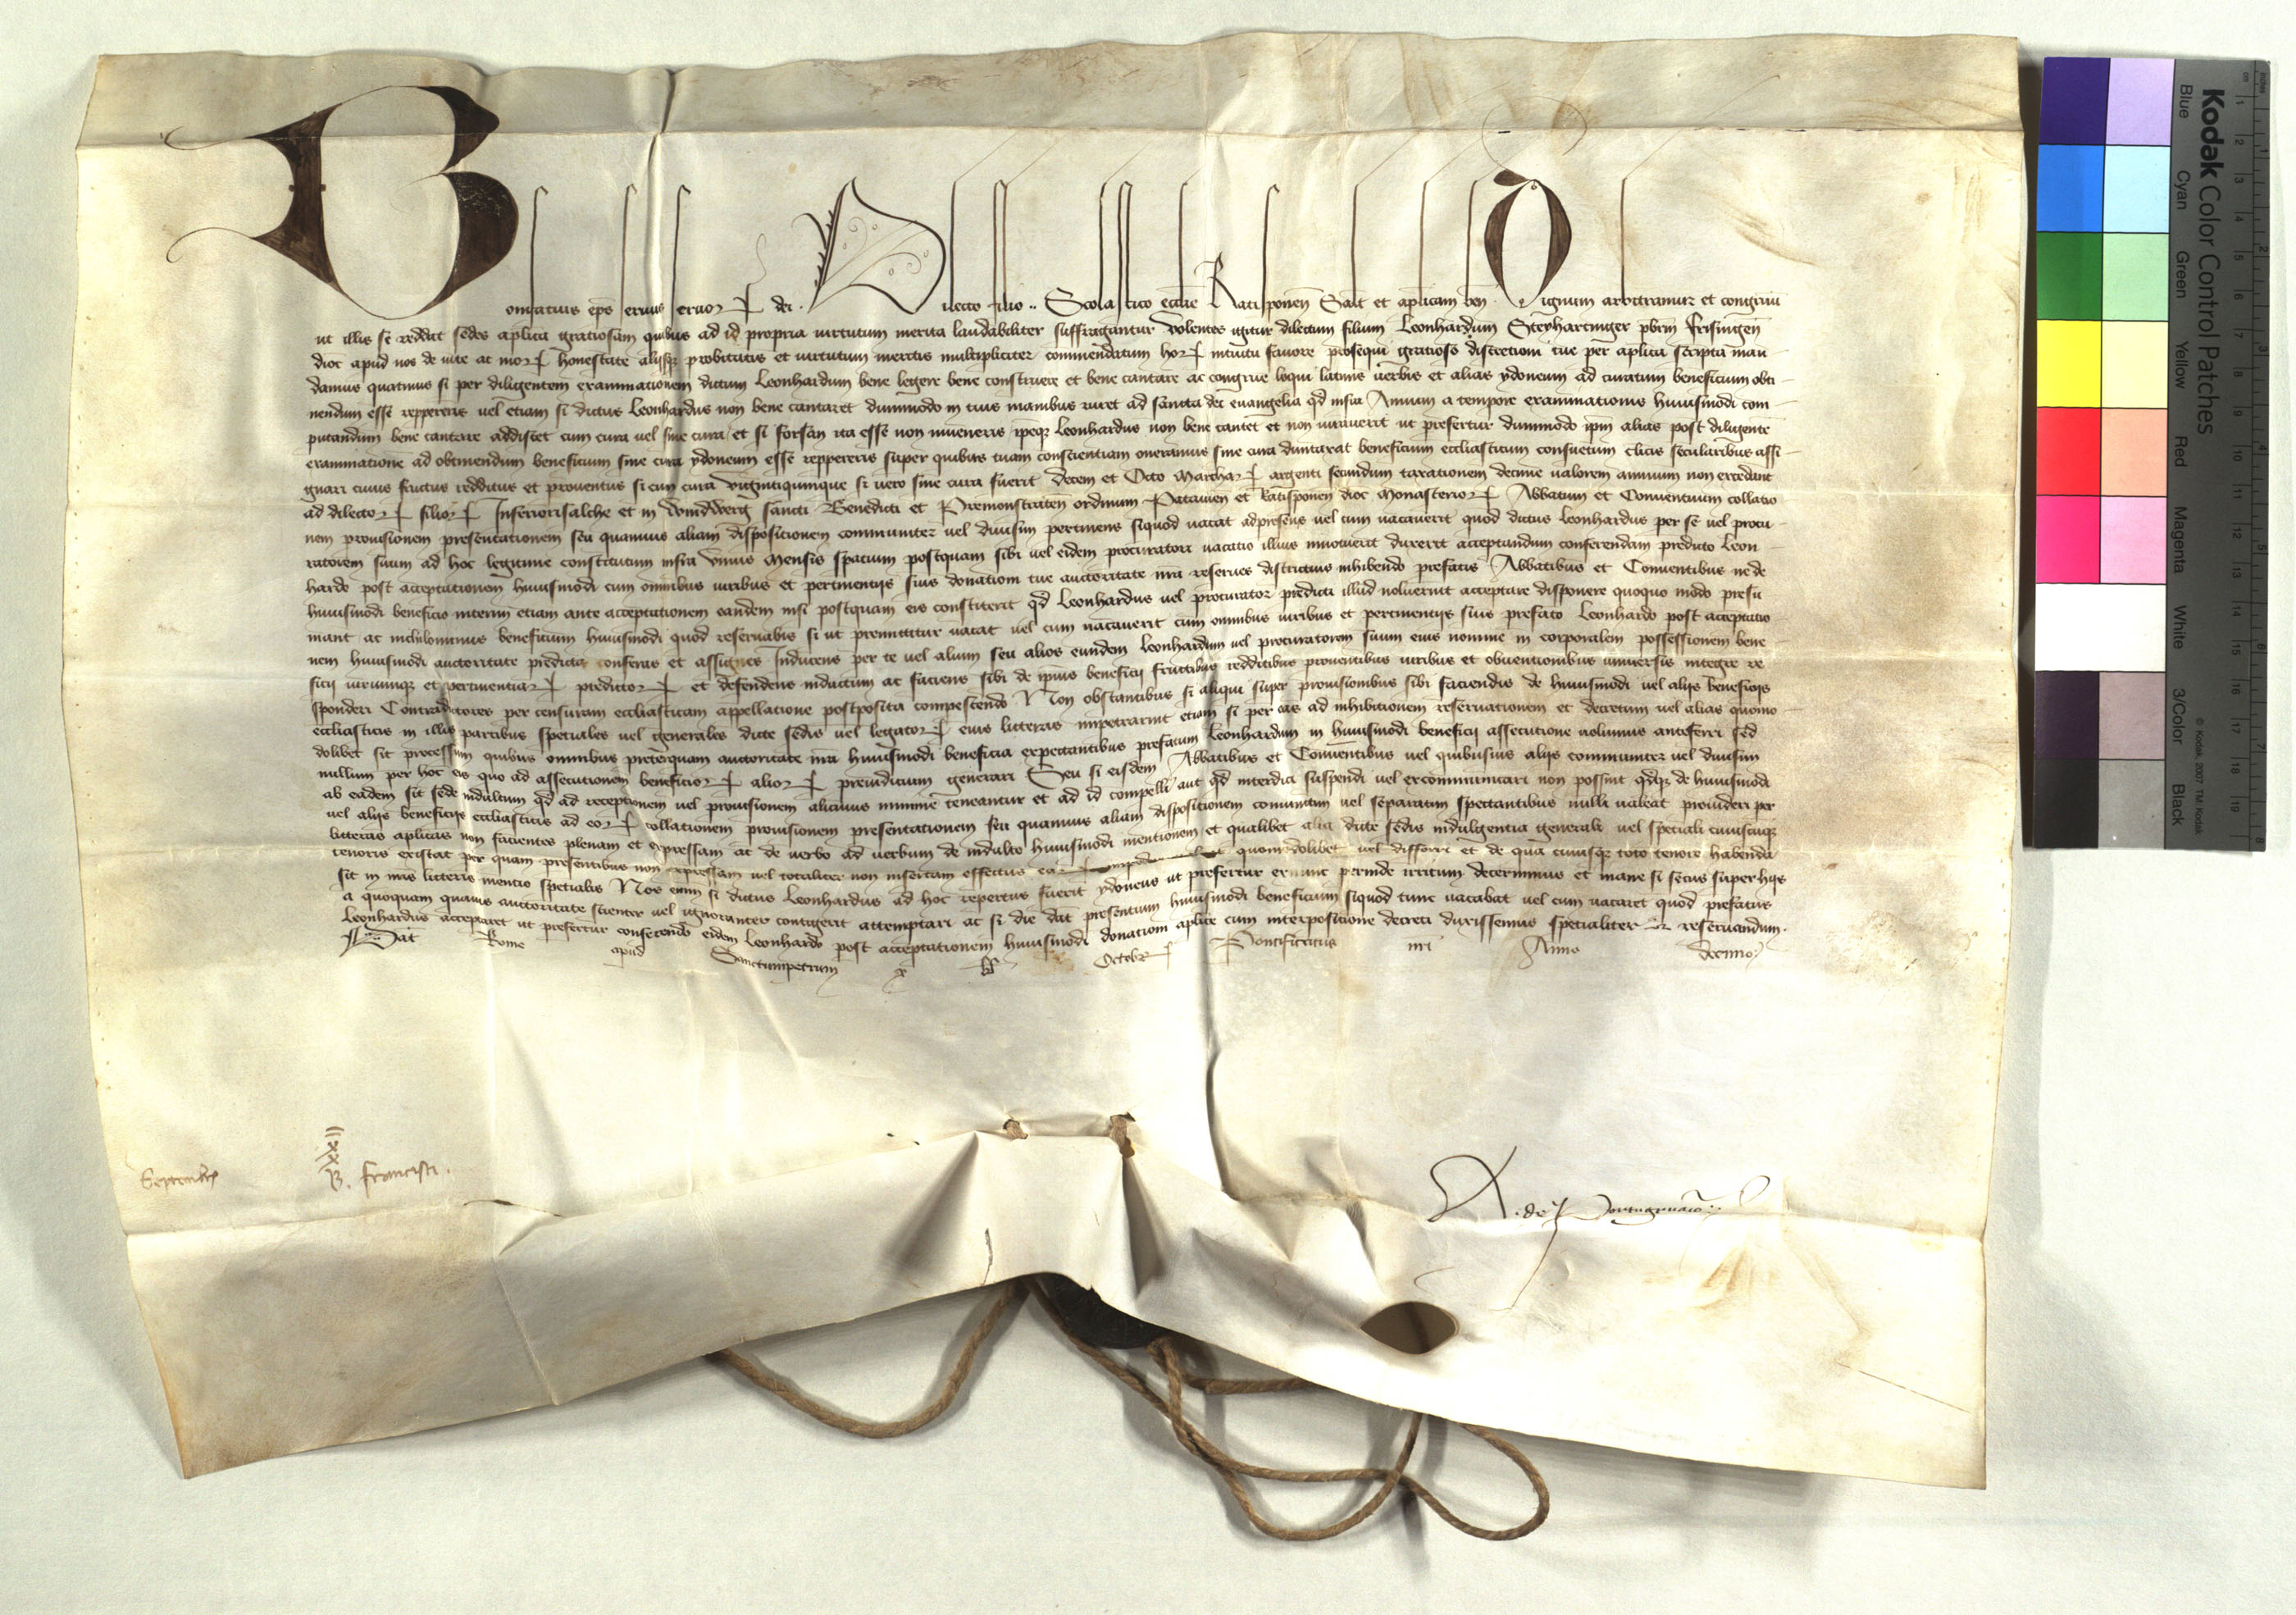 Bonifatius ep̄s seruus seruoꝝ dei. Dilecto filio .. Scolastico eccl̄ie Ratisponen̄ Salt̄ et aplicam ben̄. Dignum arbitramur et congruū
ut illis se reddat sedes aplica gratiosam quibus ad id propria uirtutum merita laudabiliter suffragantur Volentes igitur dilectum filium Leonhardum Steyhartinger pbrm̄ Frisingen̄
dioc̄ apud nos de uite ac moꝝ honestate alijsqꝫ probitatis et uirtutum meritis multipliciter commendatum hoꝝ intuitu fauore prosequi gratioso discretioni tue per aplica scripta man
damus quatinus si per diligentem examinationem dictum Leonhardum bene legere bene construere et bene cantare ac congrue loqui latinis uerbis et alias ydoneum ad curatum beneficium obti-
nendum esse reppereris uel etiam si dictus Leonhardus non bene cantaret dummodo in tuis manibus iuret ad sancta dei euangelia qd̄ infra Annum a tempore examinationis huiusmodi com-
putandum bene cantare addiscet cum cura uel sine cura et si forsan ita esse non inueneris ipeqꝫ Leonhardus non bene cantet et non iurauerit ut prefertur dummodo ipm̄ alias post diligente
examinatione ad obtinendum beneficium sine cura ydoneum esse reppereris super quibus tuam conscientiam oneramus sine cura duntaxat beneficium eccl̄iasticum consuetum cl̄icis secularibus assi-
gnari cuius fructus redditus et prouentus si cum cura vigintiquinque si uero sine cura fuerit decem et Octo Marchaꝝ argenti secundum taxationem decime ualorem annuum non excedant
ad dilectoꝝ filioꝝ Inferiorisalche et in Windwerg sancti Benedicti et Premonstraten̄ ordinum Patauien̄ et Ratisponen̄ dioc̄ Monasterioꝝ Abbatum et Conuentuum collatio
nem prouisionem presentationem seu quamuis aliam dispositionem communiter uel diuisim pertinens siquod uacat adpresens uel cum uacauerit quod dictus Leonhardus per se uel procu-
ratorem suum ad hoc legitime constitutum infra vnius Mensis spatium postquam sibi uel eidem procuratori uacatio illius innotuerit duxerit acceptandum conferendum predicto Leon-
hardo post acceptationem huiusmodi cum omnibus iuribus et pertinentijs suis donationi tue auctoritate nr̄a reserues districtius inhibendo prefatis Abbatibus et Conuentibus ne de
huiusmodi beneficio interim etiam ante acceptationem eandem nisi postquam eis constiterit qd̄ Leonhardus uel procurator predicti illud noluerint acceptare disponere quoquo modo presu
mant ac nichilominus beneficium huiusmodi quod reseruabis si ut premittitur uacat uel cum uacauerit cum omnibus iuribus et pertinentijs suis prefato Leonhardo post acceptatio
nem huiusmodi auctoritate predicta conferas et assignes Inducens per te uel alium seu alios eundem Leonhardum uel procuratorem suum eius nomine in corporalem possessionem bene-
ficij iuriumqꝫ et pertinentiaꝝ predictoꝝ et defendens inductum ac faciens sibi de ipius beneficij fructibus redditibus prouentibus iuribus et obuentionibus uniuersis integre re
sponderi Contradictores per censuram eccl̄iasticam appellatione postposita compescendo Non obstantibus si aliqui super prouisionibus sibi faciendis de huiusmodi uel alijs beneficijs
eccl̄iasticis in illis partibus speciales uel generales dicte sedis uel legatoꝝ eius litteras impetrarint etiam si per eas ad inhibitionem reseruationem et decretum uel alias quomo-
dolibet sit processum quibus omnibus preterquam auctoritate nr̄a huiusmodi beneficia expectantibus prefatum Leonhardum in huiusmodi beneficij assecutione uolumus anteferri sed
nullum per hoc eis quo ad assecutionem beneficioꝝ alioꝝ preiudicium generari Seu si eisdem Abbatibus et Conuentibus uel quibusuis alijs communiter uel diuisim
ab eadem sit sede indultum qd̄ ad receptionem uel prouisionem alicuius minime teneantur et ad id compelli aut qd̄ interdici suspendi uel excommunicari non possint qd̄qꝫ de huiusmodi
uel alijs beneficijs eccl̄iasticis ad eoꝝ collationem prouisionem presentationem seu quamuis aliam dispositionem coniunctim uel separatim spectantibus nulli ualeat prouideri per
litteras aplicas non facientes plenam et expressam ac de uerbo ad uerbum de indulto huiusmodi mentionem et qualibet alia dicte sedis indulgentia generali uel speciali cuiuscūqꝫ
tenoris existat per quam presentibus non expressam uel totaliter non insertam effectus eaꝝ impediri ualeat quomodolibet uel differri et de qua cuiusqꝫ toto tenore habenda
sit in nr̄is litteris mentio specialis Nos enim si dictus Leonhardus ad hoc repertus fuerit ydoneus ut prefertur exnunc perinde irritum decernimus et inane si secus super hijs
a quoquam quauis auctoritate scienter uel ignoranter contigerit attemptari ac si die dat̄ presentium huiusmodi beneficium siquod tunc uacabat uel cum uacaret quod prefatus
Leonhardus acceptaret ut prefertur conferendo eidem Leonhardo post acceptationem huiusmodi donationi aplice cum interpositione decreti duxissemus specialiter reseruandum.
Dat̄ Rome apud Sanctumpetrum x kl̄ Octobꝝ Pontificatus nr̄i Anno decimo
Septembꝝ
B. Francisci.
A. de Portugruario
Kodak Color Control Patches
Blue Cyan Green Yellow Red Magenta White 3/Color Black
© Kodak, 2007 TM: Kodak